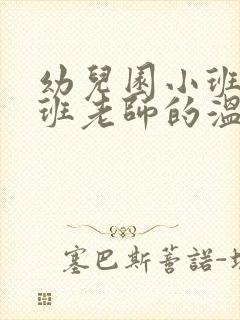 幼兒園小班
班老師的溫
塞巴斯蒂諾-塔